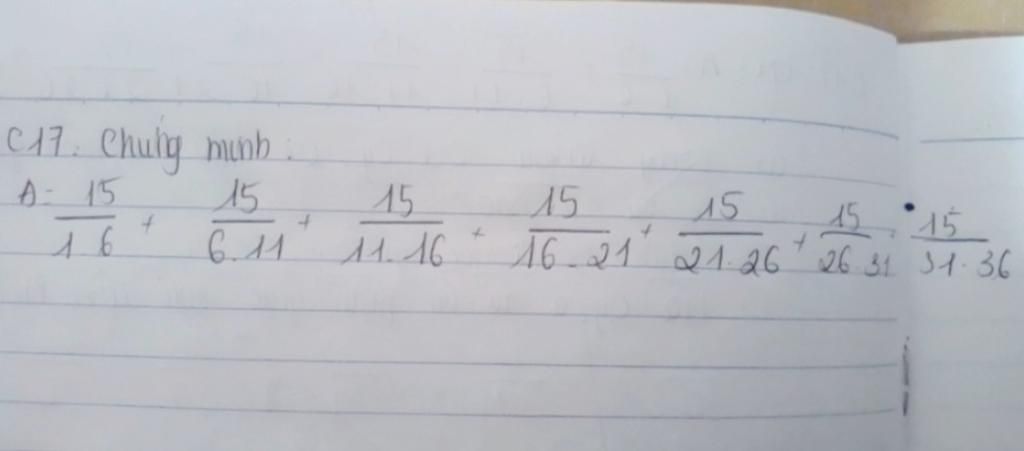 C17. Chứng minh:
A = 15/1.6 + 15/6.11 + 15/11.16 + 15/16.21 + 15/21.26 + 15/26.31 . 15/31.36